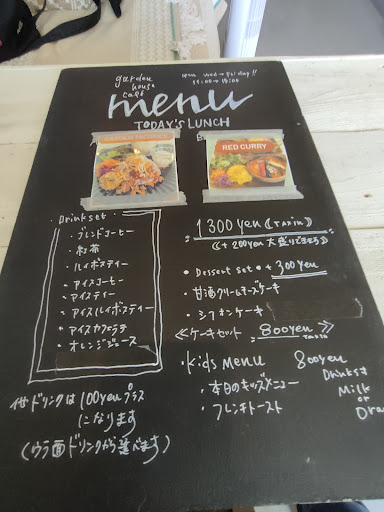 garden
house
café
open wed → friday!!
11:00 → 15:00
menu
TODAY'S LUNCH
RED CURRY
・Drink set・
・ブレンドコーヒー
・紅茶
・ルイボスティー
・アイスコーヒー
・アイスティー
・アイスルイボスティー
・アイスカフェラテ
・オレンジジュース
他ドリンクは100yenプラス
になります
(ウラ面ドリンクから選べます)
1300yen《TAXin》
《+200yen大盛りできます》
・Dessert set・+300yen
・甘酒クリームチーズケーキ
・シフォンケーキ
≪ケーキセット 800yen≫
TAXin
・Kids Menu 800yen
・本日のキッズメニュー
・フレンチトースト
Drink
Milk
or